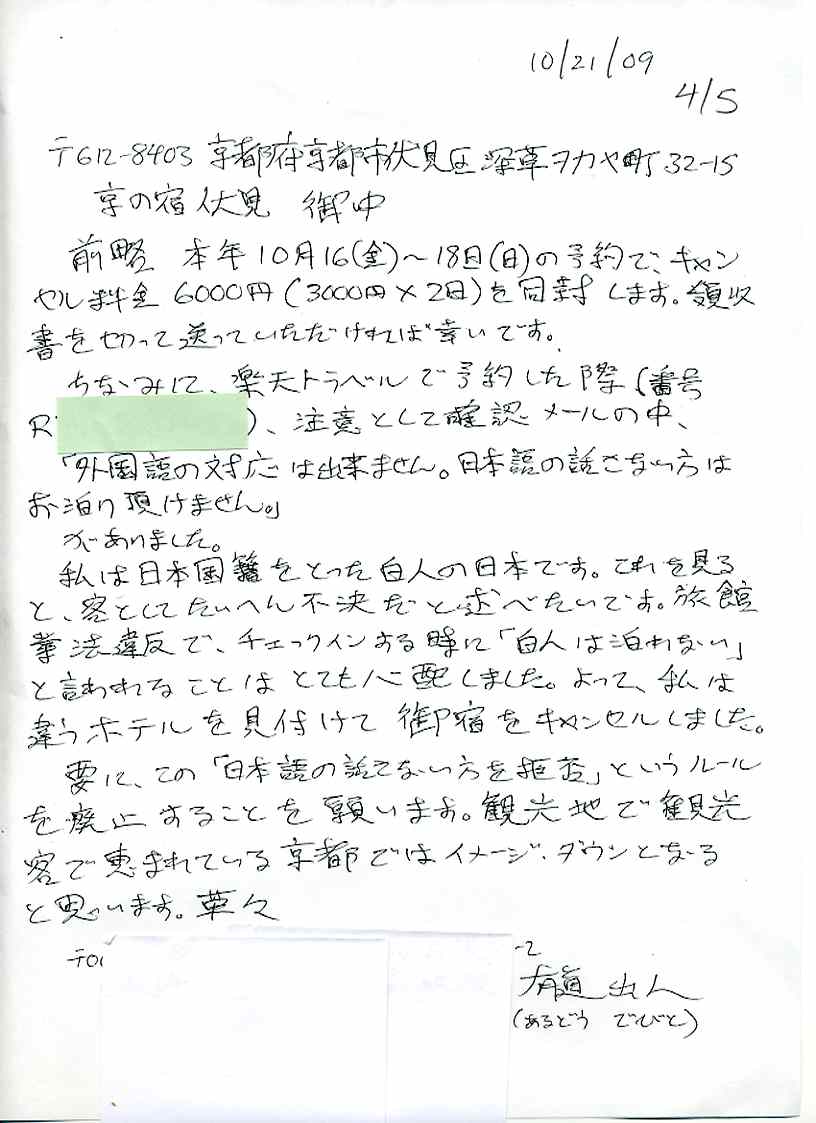 10/21/09
4/5
〒612-8403 京都府京都市伏見区深草ヲカヤ町32-15
京の宿伏見 御中
前略 本年10月16(金)～18日(日)の予約で、キャン
セル料金 6000円(3000円×2日)を同封します。領収
書を切って送っていただければ幸いです。
ちなみに、楽天トラベルで予約した際(番号
R )、注意として確認メールの中、
「外国語の対応は出来ません。日本語の話さない方は
お泊り頂けません。」
がありました。
私は日本国籍をとった白人の日本です。これを見る
と、客としてたいへん不決だと述べたいです。旅館
業法違反で、チェックインする時に「白人は泊れない」
と言われることはとても心配しました。よって、私は
違うホテルを見付けて御宿をキャンセルしました。
要に、この「日本語の話さない方を拒否」というルール
を廃止することを願います。観光地で観光
客で恵まれている京都ではイメージ・ダウンとなる
と思います。草々
〒00
-2
有道 出人
(あるどう でびと)